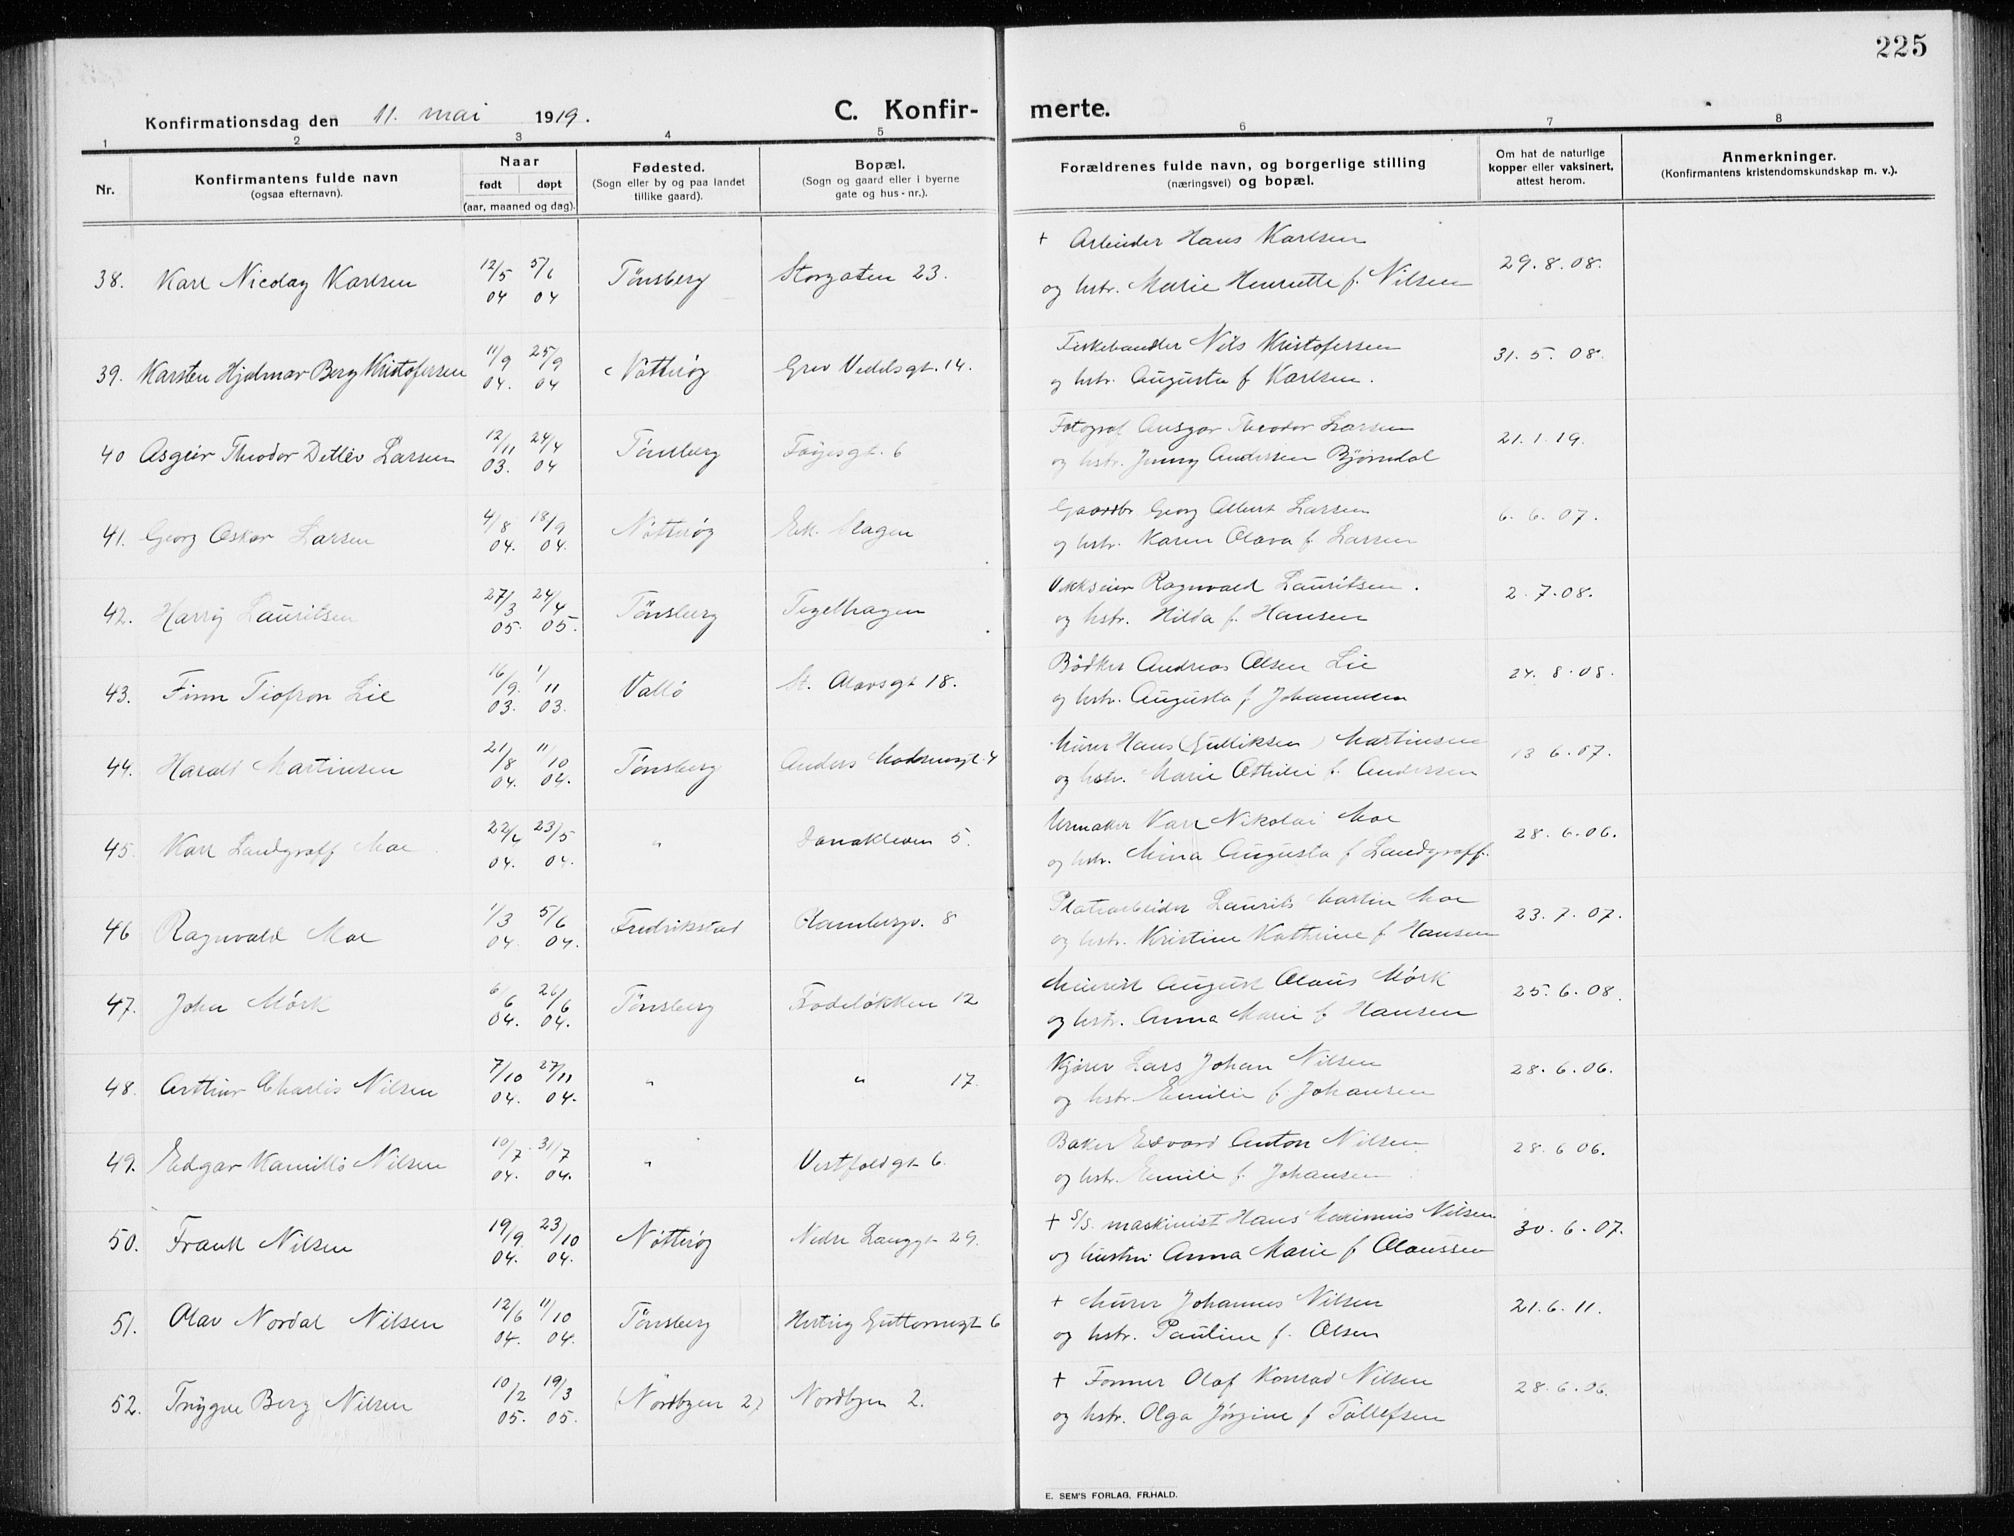 225
Konfirmationsdag den 11. mai 1919.
C. Konfir-
merte.
1 2 3 4 5 6 7 8
Nr.
Konfirmantens fulde navn
(ogsaa efternavn).
Naar
født døpt
(aar, maaned og dag).
Fødested.
(Sogn eller by og paa landet
tillike gaard).
Bopæl.
(Sogn og gaard eller i byerne
gate og hus-nr.).
Forældrenes fulde navn, og borgerlige stilling
(næringsvei) og bopæl.
Om hat de naturlige
kopper eller vaksinert,
attest herom.
Anmerkninger.
(Konfirmantens kristendomskundskap m. v.).
38. Karl Nicolay Karlsen 12/5 04 5/6 04 Tönsberg Storgaten 23.
+ Arbeider Hans Karlsen
og hstr. Marie Henriette f. Nilsen
29.8.08.
39. Karsten Hjalmar Berg Kristofersen 11/9 04. 25/9 04 Nötteröy Grev Vedelsgt. 14.
Fiskehandler Nils Kristofersen
og hstr. Augusta f Karlsen.
31.5.08.
40 Asgeir Theodor Detlev Larsen 12/11 03. 24/4 04 Tönsberg Föyesgt. 6
Fotograf Ansgar Theodor Larsen
og hstr. Jenny Andersen Bjørndal
21.1.19.
41. Georg Oskar Larsen 4/8 04. 18/9 04. Nötteröy Ek. Hagen
Gaardbr Georg Albert Larsen
og hstr. Karen Olava f. Larsen
6.6.07.
42. Harry Lauritsen 27/3 05. 24/4 05. Tönsberg Teglhagen
Ragnvald Lauritsen.
og hstr. Hilda f. Hansen
2.7.08.
43. Finn Tiofron Lie 16/9. 03. 1/11 03. Vallö St. Olavsgt 18.
Bödker Andreas Olsen Lie
og hstr. Augusta f Johannesen
24.8.08.
44. Harald Martinsen 21/8 04. 11/10 04. Tönsberg Anders Madsensgt. 4
Murer Hans (Gulliksen) Martinsen
og hstr. Marie Othilie f. Andersen
13 6.07.
45. Karl Landgraff Moe 22/2 04. 23/5 04. " Danakleven 5.
Urmaker Karl Nikolai Moe
og hstr. Mina Augusta f Landgraff.
28.6.06.
46 Ragnvald Moe 1/3 04. 5/6 04. Fredrikstad Rambergv. 8
Platearbeider Laurits Martin Moe
og hstr. Kristine Kathrine f Hansen
23.7.07.
47. John Mörk 6/6 04. 26/6 04. Tönsberg Trodeløkken 12
August Olaus Mørk
og hstr. Anna Marie f Hansen
25.6.08.
48. Arthur Charles Nilsen 7/10 04. 27/11 04. " " 17.
Kjører Lars Johan Nilsen
og hstr. Emilie f. Johansen
28.6.06.
49. Edgar Kamillo Nilsen 10/7 04. 31/7 04. " Vestfoldgt 6.
Baker Edvard Anton Nilsen.
og hstr. Emilie f. Johansen
28.6 06.
50. Frank Nilsen 19/9 04. 23/10 04. Nötteröy Nedre Langgt 29.
+ S/S. maskinist Hans Maximius Nilsen
og hustru Anna Marie f Olaussen
30.6.07.
51. Olav Nordal Nilsen 12/6 04. 11/10 04. Tönsberg Hertug Guttormsgt 6
+ Murer Johannes Nilsen
og hstr. Pauline f. Olsen
21.6.11.
52. Trygve Berg Nilsen 10/2 05. 19/3 05. (Nordbyen 2) Nordbyen 2.
+ Former Olaf Konrad Nilsen
og hstr. Olga Jørgine f Tollefsen
28.6.06.
E. SEM'S FORLAG, FR.HALD.